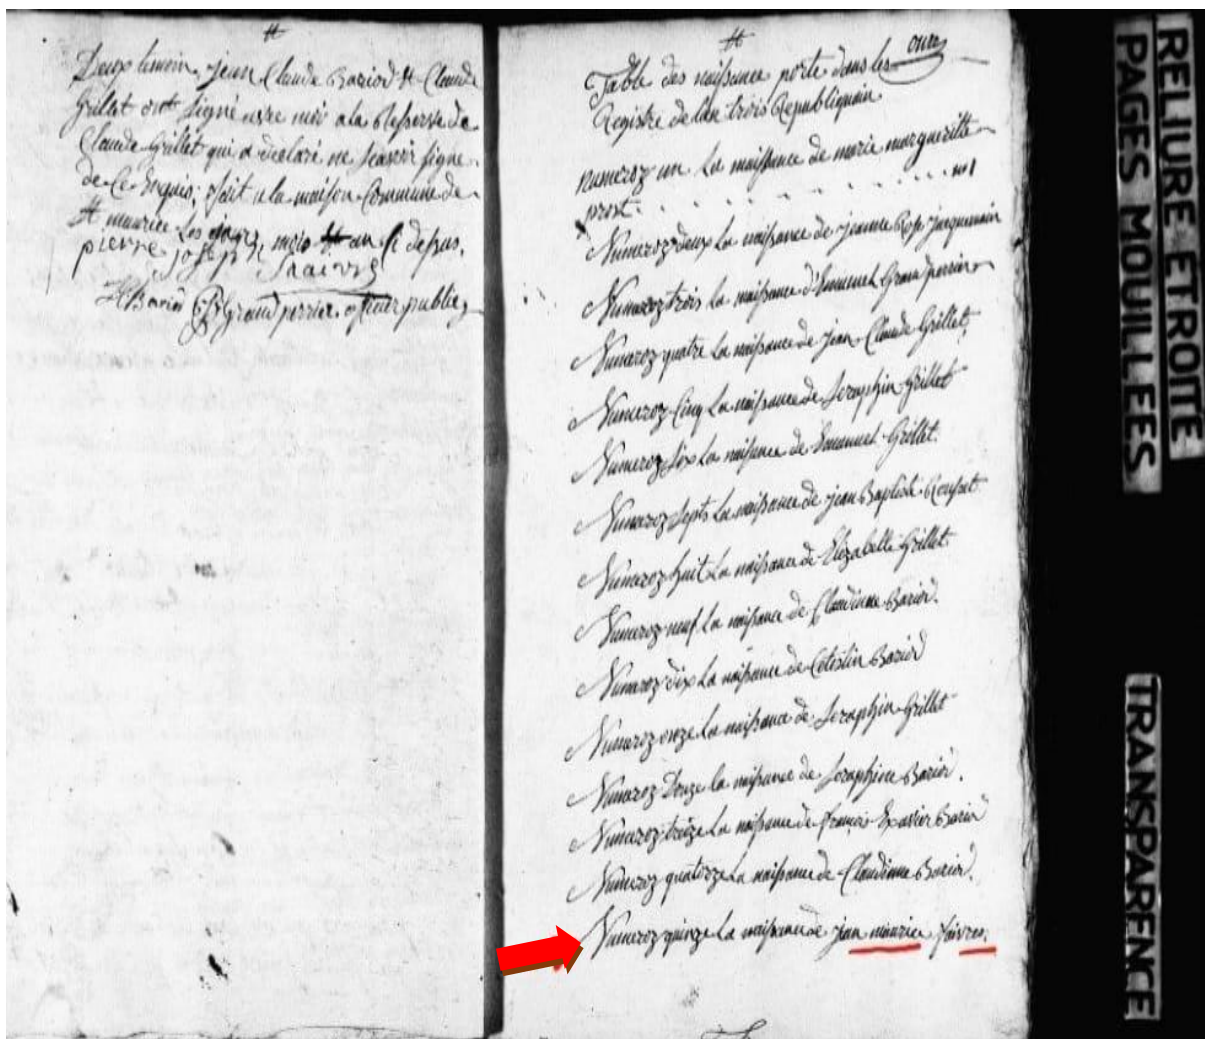 Deux temoin, jean Claude Bariod & Claude
Grillet ont signé avec moi a la Reserve de
Claude Grillet qui a declaré ne scavoir signe
de ce enquis, fait a la maison Commune de
St maurice les jours, mois & an ci depus.
pierre joseph faivre
Bariod Grand perrier officier public
onze
Table des naissance porté dans les
Registre de lan trois Republiquain
numeroz un la naissance de marie margueritte
prost . . . . . . . . . . n° 1
Numeroz deux La naissance de jeanne Rose Jacquemin
Numeroz trois la naissance d'Emanuel Grand perrier
Numeroz quatre La naissance de jean Claude Grillet
Numeroz Cinq La naissance de Seraphin Grillet
Numeroz Six La naissance de Emanuel Grillet
Numeroz Septs La naissance de jean Baptist
Numeroz huit La naissance de Elizabelle Grillet
Numeroz neuf La naissance de Claudinne Bariod
Numeroz dix La naissance de Celestin Bariod
Numeroz onze La naissance de Seraphin Grillet
Numeroz Douze La naissance de Seraphine Bariod.
Numeroz treize La naissance de françois Exavier Bariod
Numeroz quatorze La naissance de Claudinne Bariod.
Numeroz quinze La naissance de jean maurice faivre.
RELIURE ETROITE
PAGES MOUILLEES
TRANSPARENCE